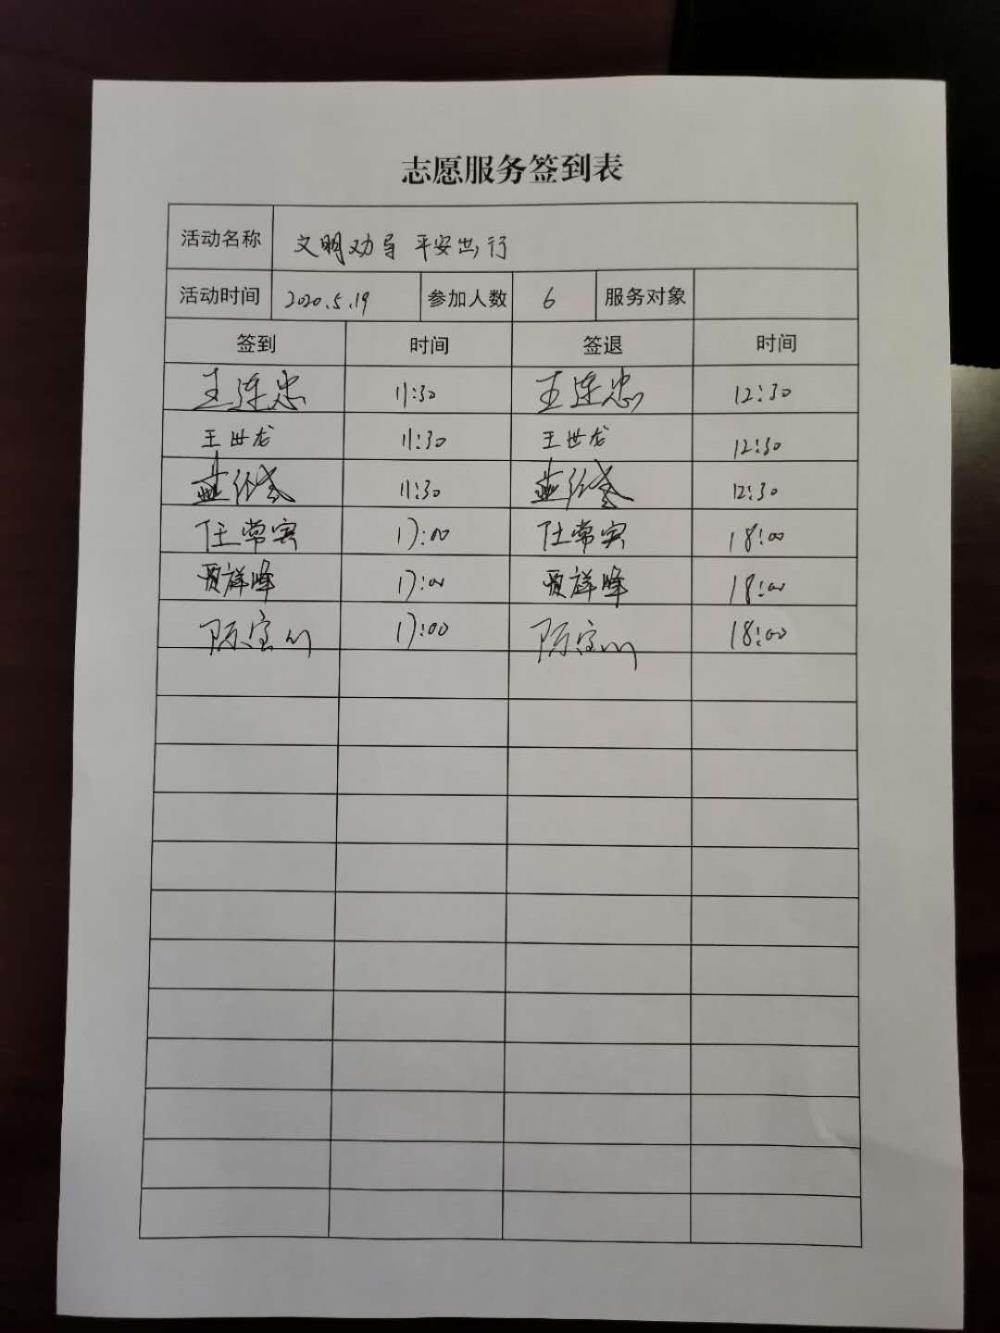 志愿服务签到表
活动名称 文明劝导 平安出行
活动时间 2020.5.19 参加人数 6 服务对象
签到 时间 签退 时间
王连忠 11:30 王连忠 12:30
王世龙 11:30 王世龙 12:30
11:30 12:30
任常宾 17:00 任常宾 18:00
贾祥峰 17:00 贾祥峰 18:00
陈宝川 17:00 陈宝川 18:00